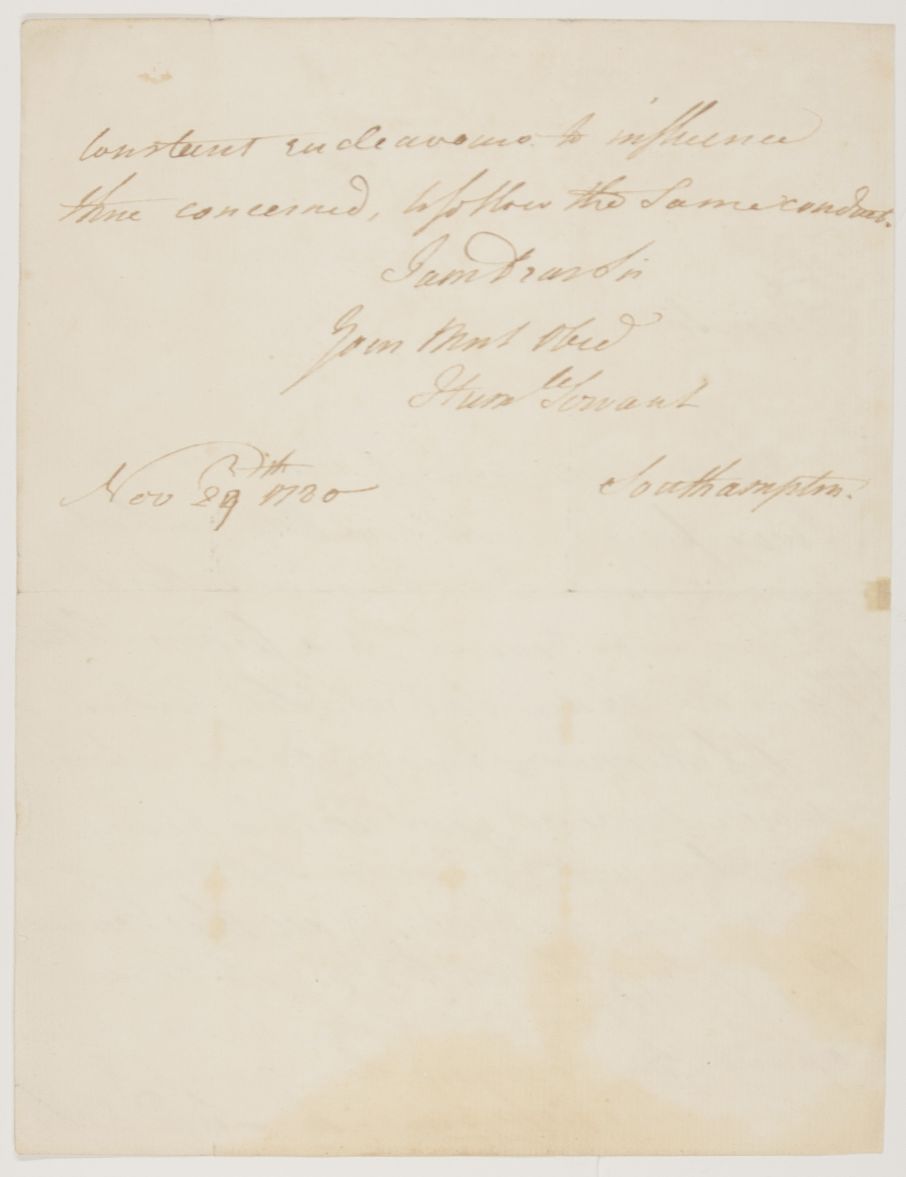 Constant endeavours to influence
those concerned, to follow the same conduct.
I am Dear Sir
Your Most Obed
Humle Servant
Nov 29th 1780 Southampton.